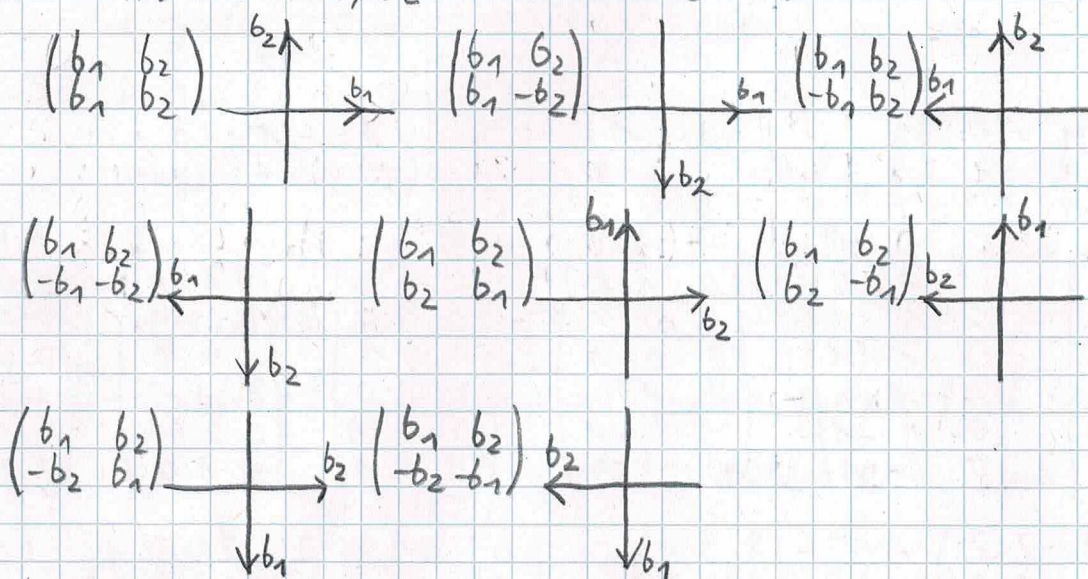 b₂
(b₁ b₂) (b₁ b₂) (b₁ b₂) b₂
(b₁ b₂) b₁ (b₁ -b₂) b₁ (-b₁ b₂) b₁
b₂
b₁ b₁
(b₁ b₂) (b₁ b₂) (b₁ b₂)
(-b₁ -b₂) b₁ (b₂ b₁) b₂ (b₂ -b₁) b₂
b₂
(b₁ b₂) (b₁ b₂)
(-b₂ b₁) b₂ (-b₂ -b₁) b₂
b₁ b₁